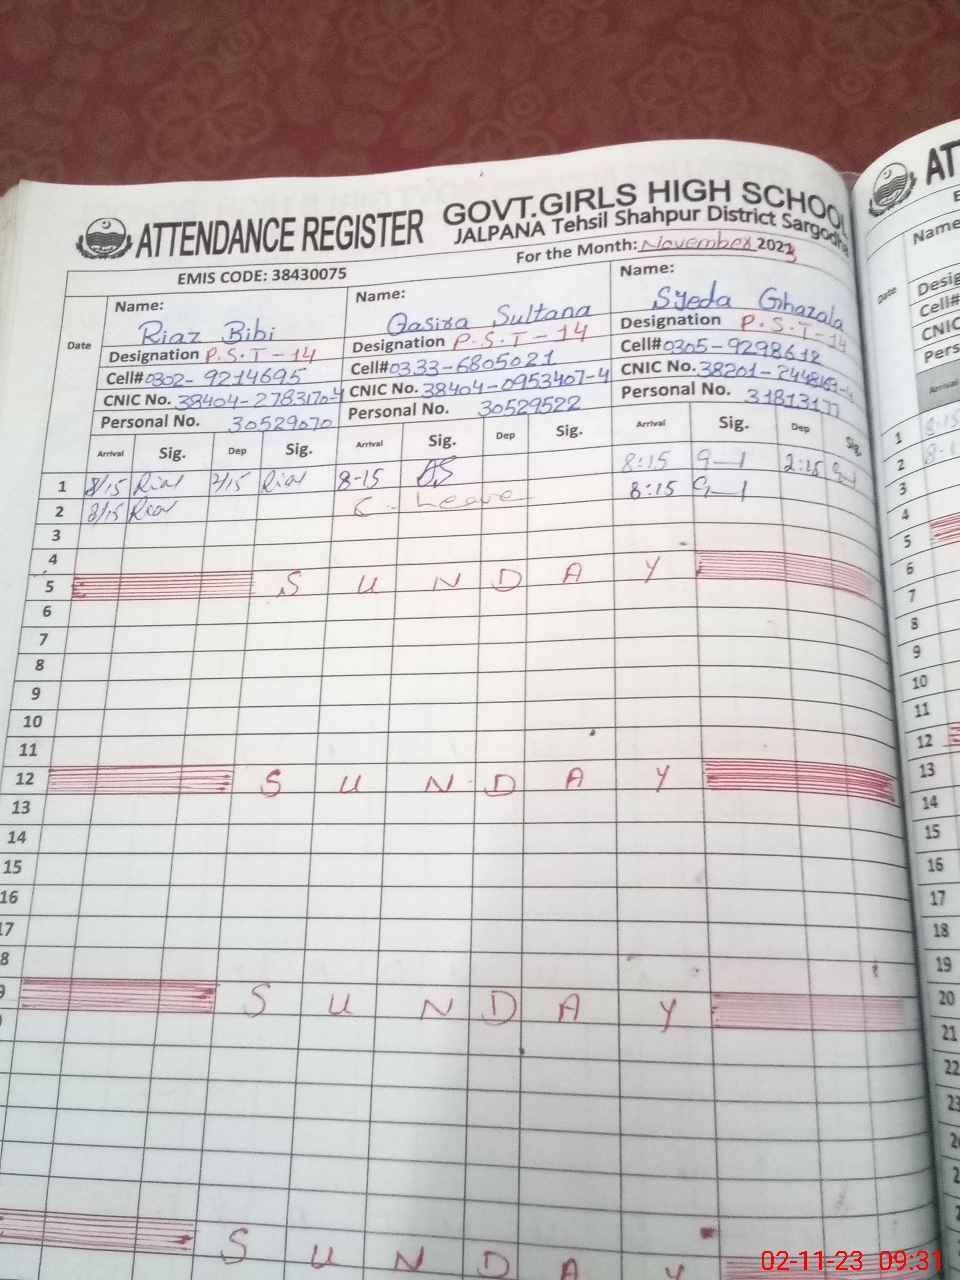 ATTENDANCE REGISTER
GOVT.GIRLS HIGH SCHOOL
JALPANA Tehsil Shahpur District Sargodha
EMIS CODE: 38430075
For the Month: November 2023
Date
Name: Riaz Bibi
Designation P.S.T-14
Cell# 0302-9214695
CNIC No. 38404-2783170-4
Personal No. 30529070
Name: Qasira Sultana
Designation P.S.T-14
Cell# 0333-6805021
CNIC No. 38404-0953407-4
Personal No. 30529522
Name: Syeda Ghazala
Designation P.S.T-14
Cell# 0305-9298612
CNIC No. 38201-
Personal No.
Arrival Sig. Dep Sig. Arrival Sig. Dep Sig. Arrival Sig. Dep Sig.
1 8/15 Riaz 2/15 Riaz 8-15 8:15 2:15
2 8/15 Riaz C. Leave 8:15
3
4
5 SUNDAY
6
7
8
9
10
11
12 SUNDAY
13
14
15
16
17
8
9 SUNDAY
SUNDAY
AT
Name
Date
Desig
Cell#
CNIC
Pers
Arrival
1 8:15
2
3
4
5
6
7
8
9
10
11
12
13
14
15
16
17
18
19
20
21
22
23
02-11-23 09:31